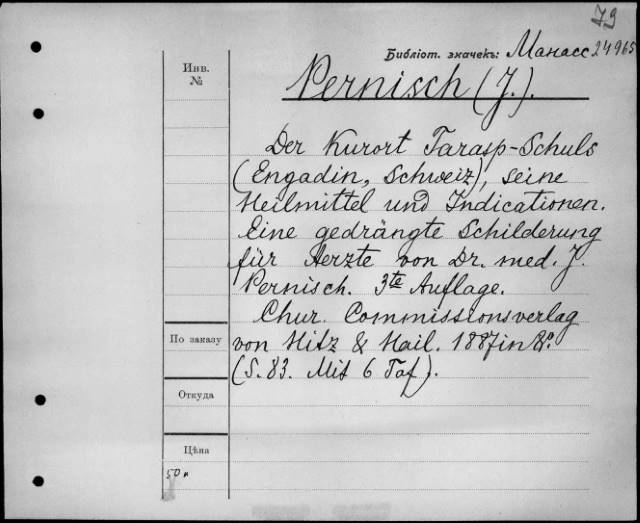 79
Библіот. значекъ: Манасс 24965
Инв.
№
Pernisch (J.).
Der Kurort Tarasp-Schuls
(Engadin, Schweiz), seine
Heilmittel und Indicationen.
Eine gedrängte Schilderung
für Aerzte von Dr. med. J.
Pernisch. 3te Auflage.
Chur. Commissionsverlag
По заказу
von Hitz & Hail. 1887 in 8o.
(S. 83. Mit 6 Taf.).
Откуда
Цѣна
50 к